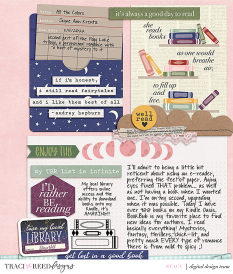 it's always a good day to read
All the Colors
she
reads
books
as one would
breathe
air,
to fill up
and
live
if i'm honest,
i still read fairytales
and i like them best of all
-audrey hepburn
well
read
ENJOY THIS
My TBR list is infinite
I'D
RATHER
BE
READING
My local library
offers online
access and the
ability to download
books onto my
Kindle, it's
AMAZING!!
I'll admit to being a little bit
reticent about using an e-reader,
preferring the feel of paper. Aging
eyes FIXED THAT problem... as well
as not having a book when I wanted
one. I'm on my second, upgrading
when it was possible. Today I have
over 900 books on my Kindle Oasis.
BookBub is my favorite place to find
new ideas for authors. I read
basically everything! Mysteries,
fantasy, thrillers, "chick-lit", and
pretty much EVERY type of romance
there is from mild to spicy :)
love my local
LIBRARY
get lost in a good book
TRACI REED designs
digital design team